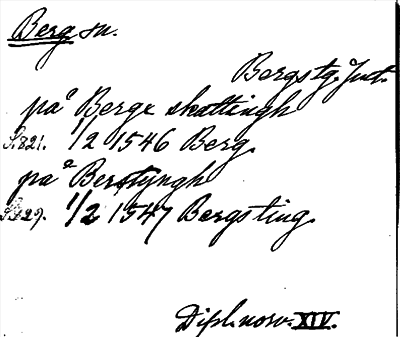 Berg sn.
Bergstg. Juct.
på Berge skattingh
S. 821. 1/2 1546 Berg.
på Berstyngh
S. 829. 1/2 1547 Bergsting.
Dipl. norv. XIV.